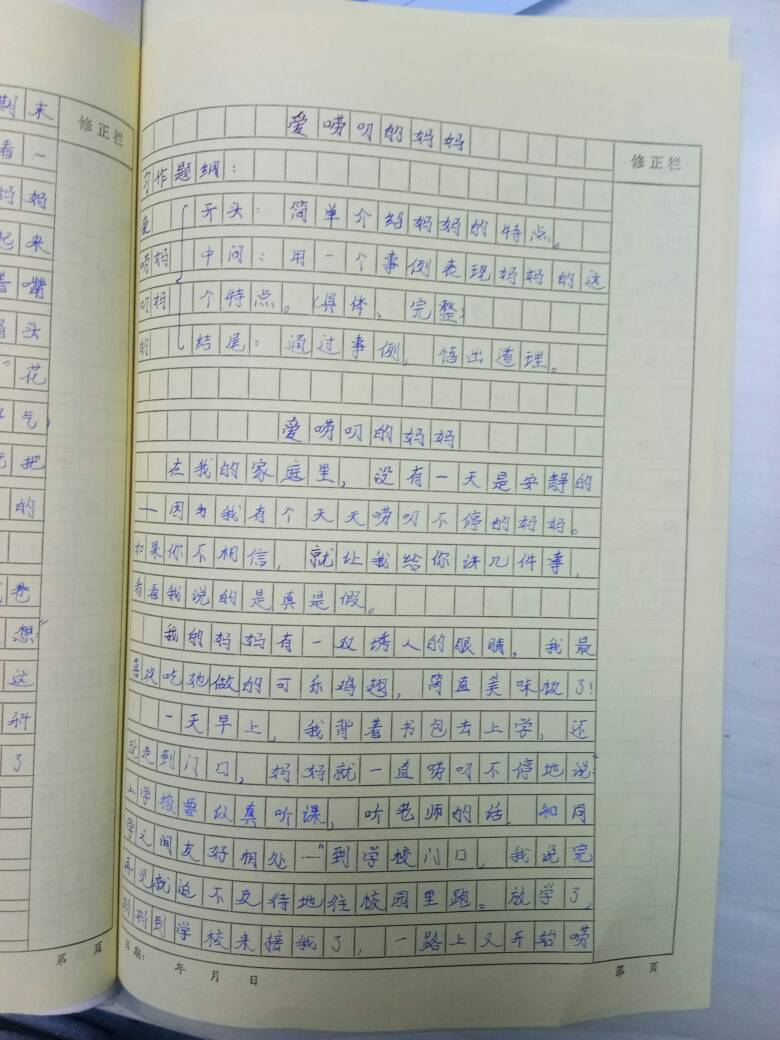 期末
看一
妈妈
起来
着嘴
眉头
花
气
把
的
巷
想"
这
科
了
修正栏
第 页
爱唠叨的妈妈
习作题纲：
爱唠叨妈妈的
开头：简单介绍妈妈的特点。
中间：用一个事例表现妈妈的这
个特点。(具体、完整)
结尾：通过事例，悟出道理。
爱唠叨的妈妈
在我的家庭里，没有一天是安静的
——因为我有个天天唠叨不停的妈妈。
如果你不相信，就让我给你讲几件事，
看看我说的是真是假。
我的妈妈有一双诱人的眼睛，我最
喜欢吃她做的可乐鸡翅，简直美味极了!
一天早上，我背着书包去上学，还
没走到门口，妈妈就一直唠叨不停地说"
上学校要认真听课，听老师的话，和同
学之间友好相处……"到学校门口，我说完
再见就迫不及待地往校园里跑。放学了，
妈妈到学校来接我了，一路上又开始唠
修正栏
日期： 年 月 日
第 页